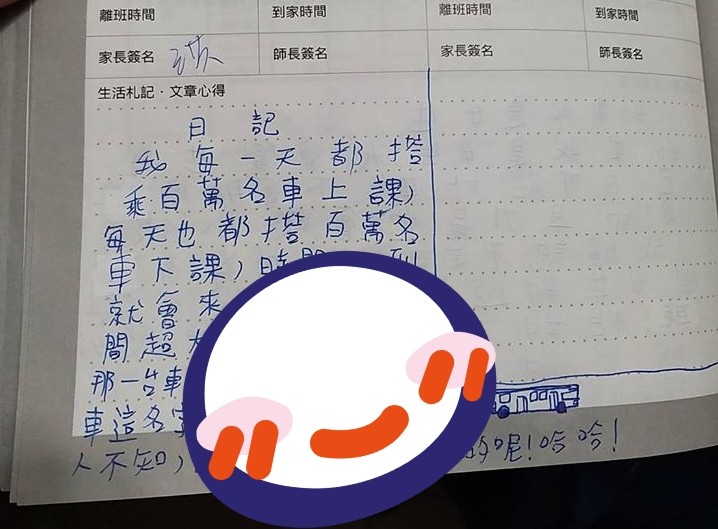 離班時間 到家時間 離班時間 到家時間
家長簽名 師長簽名 家長簽名 師長簽名
生活札記・文章心得
日記
我每一天都搭
乘百萬名車上課,
每天也都搭百萬名
車下課,時間 到
就會來
間超
那一台車
車這名字
人不知, 的呢!哈哈!